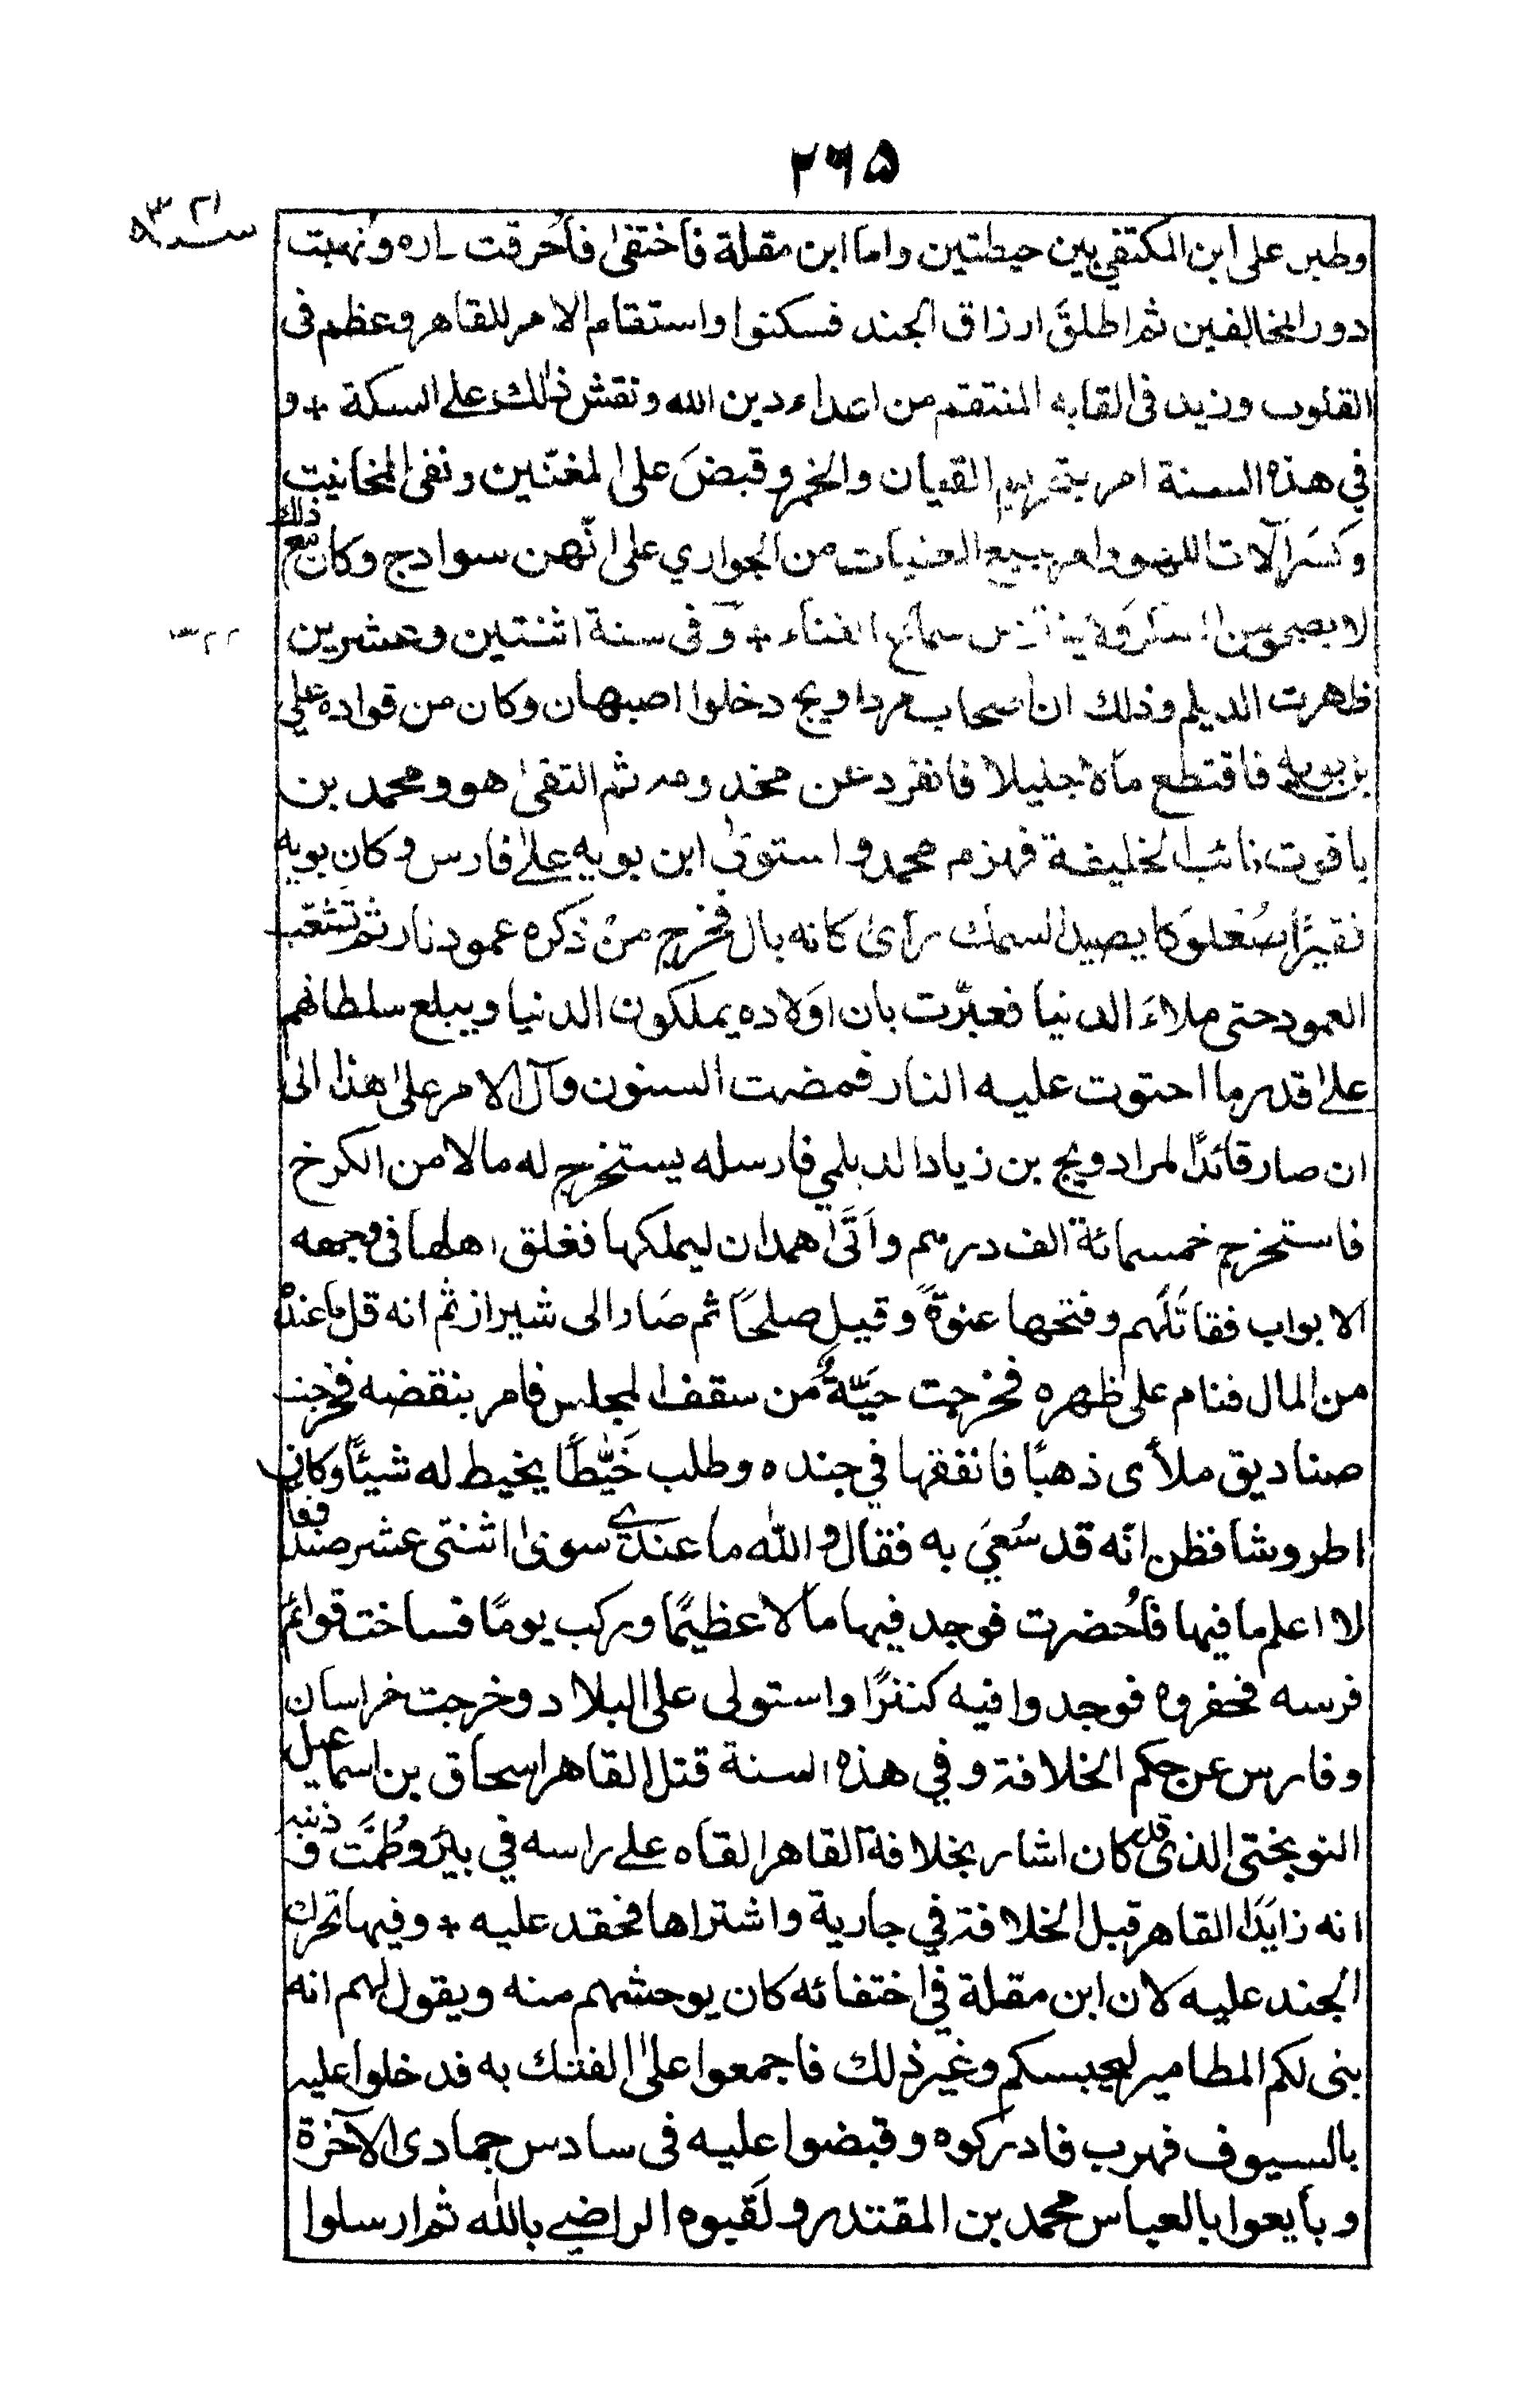 ٢٦٥
سنة ٣٢١
وطين على ابن المكتفي بين حيطتين واما ابن مقلة فاختفى فأحرقت داره ونُهبت
دور المخالفين ثم اطلق ارزاق الجند فسكنوا واستقام الامر للقاهر وعظم فى
القلوب وزيد فى القابه المنتقم من اعداء دين الله ونقش ذلك على السكة * و
في هذه السنة امر بتحريم القيان والخمر وقبضَ على المغنّين ونفى المخانيث
وكسَّر آلات اللهو وامر ببيع المغنيات من الجواري على انّهن سوادج وكان مع ذلك
لا يصحو من السكر ولا يفتر من سماع الغناء * وفى سنة اثنتين وعشرين
٣٢٢
ظهرت الديلم وذلك ان اصحاب مرداويج دخلوا اصبهان وكان من قواده على
بن بويه فاقتطع مالا جليلا فانفرد عن مخدومه ثم التقى هو ومحمد بن
ياقوت نائب الخليفة فهزم محمد واستولى ابن بويه على فارس وكان بويه
فقيرًا صُعْلوكا يصيد السمك رأى كانه بال فخرج من ذكره عمود نار ثم تَشَعّب
العمود حتى ملاءَ الدنيا فعبّرت بان اولاده يملكون الدنيا ويبلغ سلطانهم
على قدر ما احتوت عليه النار فمضت السنون وآل الامر على هذا الى
ان صار قائدًا لمرادويج بن زياد الديلمي فارسله يستخرج له مالا من الكرخ
فاستخرج خمسمائة الف درهم وأتى همدان ليملكها فغلق اهلها فى وجهه
الابواب فقاتَلَهم وفتحها عنوةً وقيل صلحًا ثم صَار الى شيراز ثم انه قل ما عنده
من المال فنام على ظهره فخرجت حيّةٌ من سقف المجلس فامر بنقضه فخرجت
صناديق ملأى ذهبًا فانفقها في جنده وطلب خَيّطًا يخيط له شيئًا وكان
اطروشا فظن انّه قد سُعيَ به فقال والله ما عندى سوى اثنتى عشر صندقا
لا اعلم ما فيها فأُحضرت فوجد فيها مالا عظيمًا وركب يومًا فساخت قوائم
فرسه فحفروه فوجدوا فيه كنزًا واستولى على البلاد وخرجت خراسان
وفارس عن حكم الخلافة وفي هذه السنة قتل القاهر اسحاق بن اسماعيل
النوبختى الذى قد كان اشار بخلافة القاهر القاه على راسه في بيرَ وطُمّت وذنبه
انه زايَدَ القاهر قبل الخلافة في جارية واشتراها فحقد عليه * وفيها تحرك
الجند عليه لان ابن مقلة في اختفائه كان يوحشهم منه ويقول لهم انه
بنى لكم المطامير ليحبسكم وغير ذلك فاجمعوا على الفتك به فدخلوا عليه
بالسيوف فهرب فادركوه وقبضوا عليه فى سادس جمادى الآخرة
وبايعوا بالعباس محمد بن المقتدر ولَقبوه الراضي بالله ثم ارسلوا